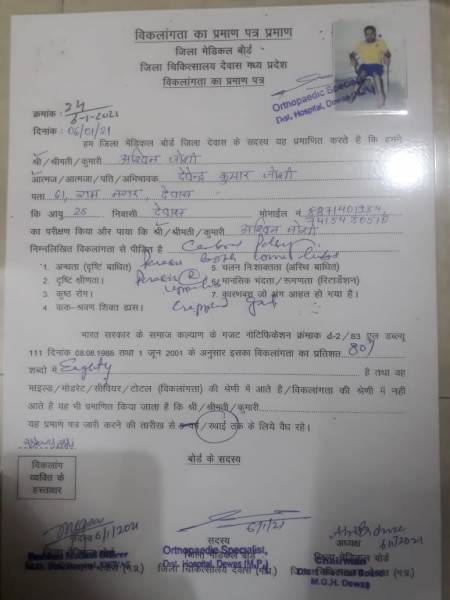 विकलांगता का प्रमाण पत्र प्रमाण
जिला मेडिकल बोर्ड
जिला चिकित्सालय देवास मध्य प्रदेश
विकलांगता का प्रमाण पत्र
Orthopaedic Specialist
Dist. Hospital, Dewas (M.P.)
क्रमांक : 24
6-1-2021
दिनांक : 06/01/21
हम जिला मेडिकल बोर्ड जिला देवास के सदस्य यह प्रमाणित करते है कि हमने
श्री/श्रीमती/कुमारी अश्विन जोशी
आत्मज/आत्मजा/पति/अभिभावक देवेन्द्र कुमार जोशी
पता 61, राम नगर, देवास
कि आयु 25 निवासी देवास मोबाईल नं.
का परीक्षण किया और पाया कि श्री/श्रीमती/कुमारी अश्विन जोशी
निम्नलिखित विकलांगता से पीड़ित है Cerebral Palsy
1. अन्धता (दृष्टि बाधित) both lower limbs 5. चलन निःशक्तता (अस्थि बाधित)
2. दृष्टि क्षीणता। 6. मानसिक भंदता/रूगणता (रिटार्डेशन)
3. कुष्ठ रोग। 7. कारणवश जो अंग आहत हो गया है।
4. वाक-श्रवण शिक्त ह्रास।
भारत सरकार के समाज कल्याण के गजट नोटिफिकेशन क्रंमाक d-2/83 एल डब्ल्यु
111 दिनांक 08.08.1986 तथा 1 जून 2001 के अनुसार इसका विकलांगता का प्रतिशत 80%
शब्दो में Eighty है तथा वह
माइल्ड/मोडरेट/सीवियर/टोटल (विकलांगता) की श्रेणी में आते है/विकलांगता की श्रेणी में नही
आते है यह भी प्रमाणित किया जाता है कि श्री/श्रीमती/कुमारी
यह प्रमाण पत्र जारी करने की तारीख से वर्ष/स्थाई तक के लिये वैध रहे।
बोर्ड के सदस्य
विकलांग
व्यक्ति के
हस्ताक्षर
सदस्य 6/1/2021
सदस्य 6/1/21
अध्यक्ष 6/1/2021
जिला मेडिकल बोर्ड
Orthopaedic Specialist,
Dist. Hospital, Dewas (M.P.)
जिला चिकित्सालय देवास (म.प्र.)
Chairman
District Medical Board
M.G.H. Dewas